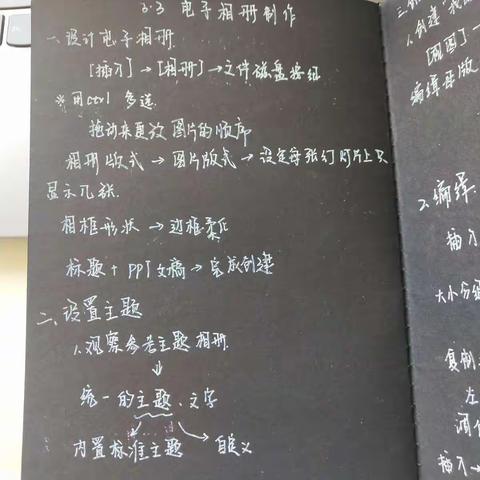 3.3 电子相册制作
一、设计电子相册.
[插入]→[相册]→文件磁盘按钮
※用ctrl 多选.
拖动来更改图片的顺序
相册版式→图片版式→设定每张幻灯片上只
显示几张.
相框形状→边框柔化
标题+PPT文稿→完成创建
二、设置主题
1.观察参考主题相册.
↓
统一的主题、文字
内置标准主题 自定义
1.创建
[视图]→
编辑母版
2.编辑.
插入
大小
复制
左
插入→